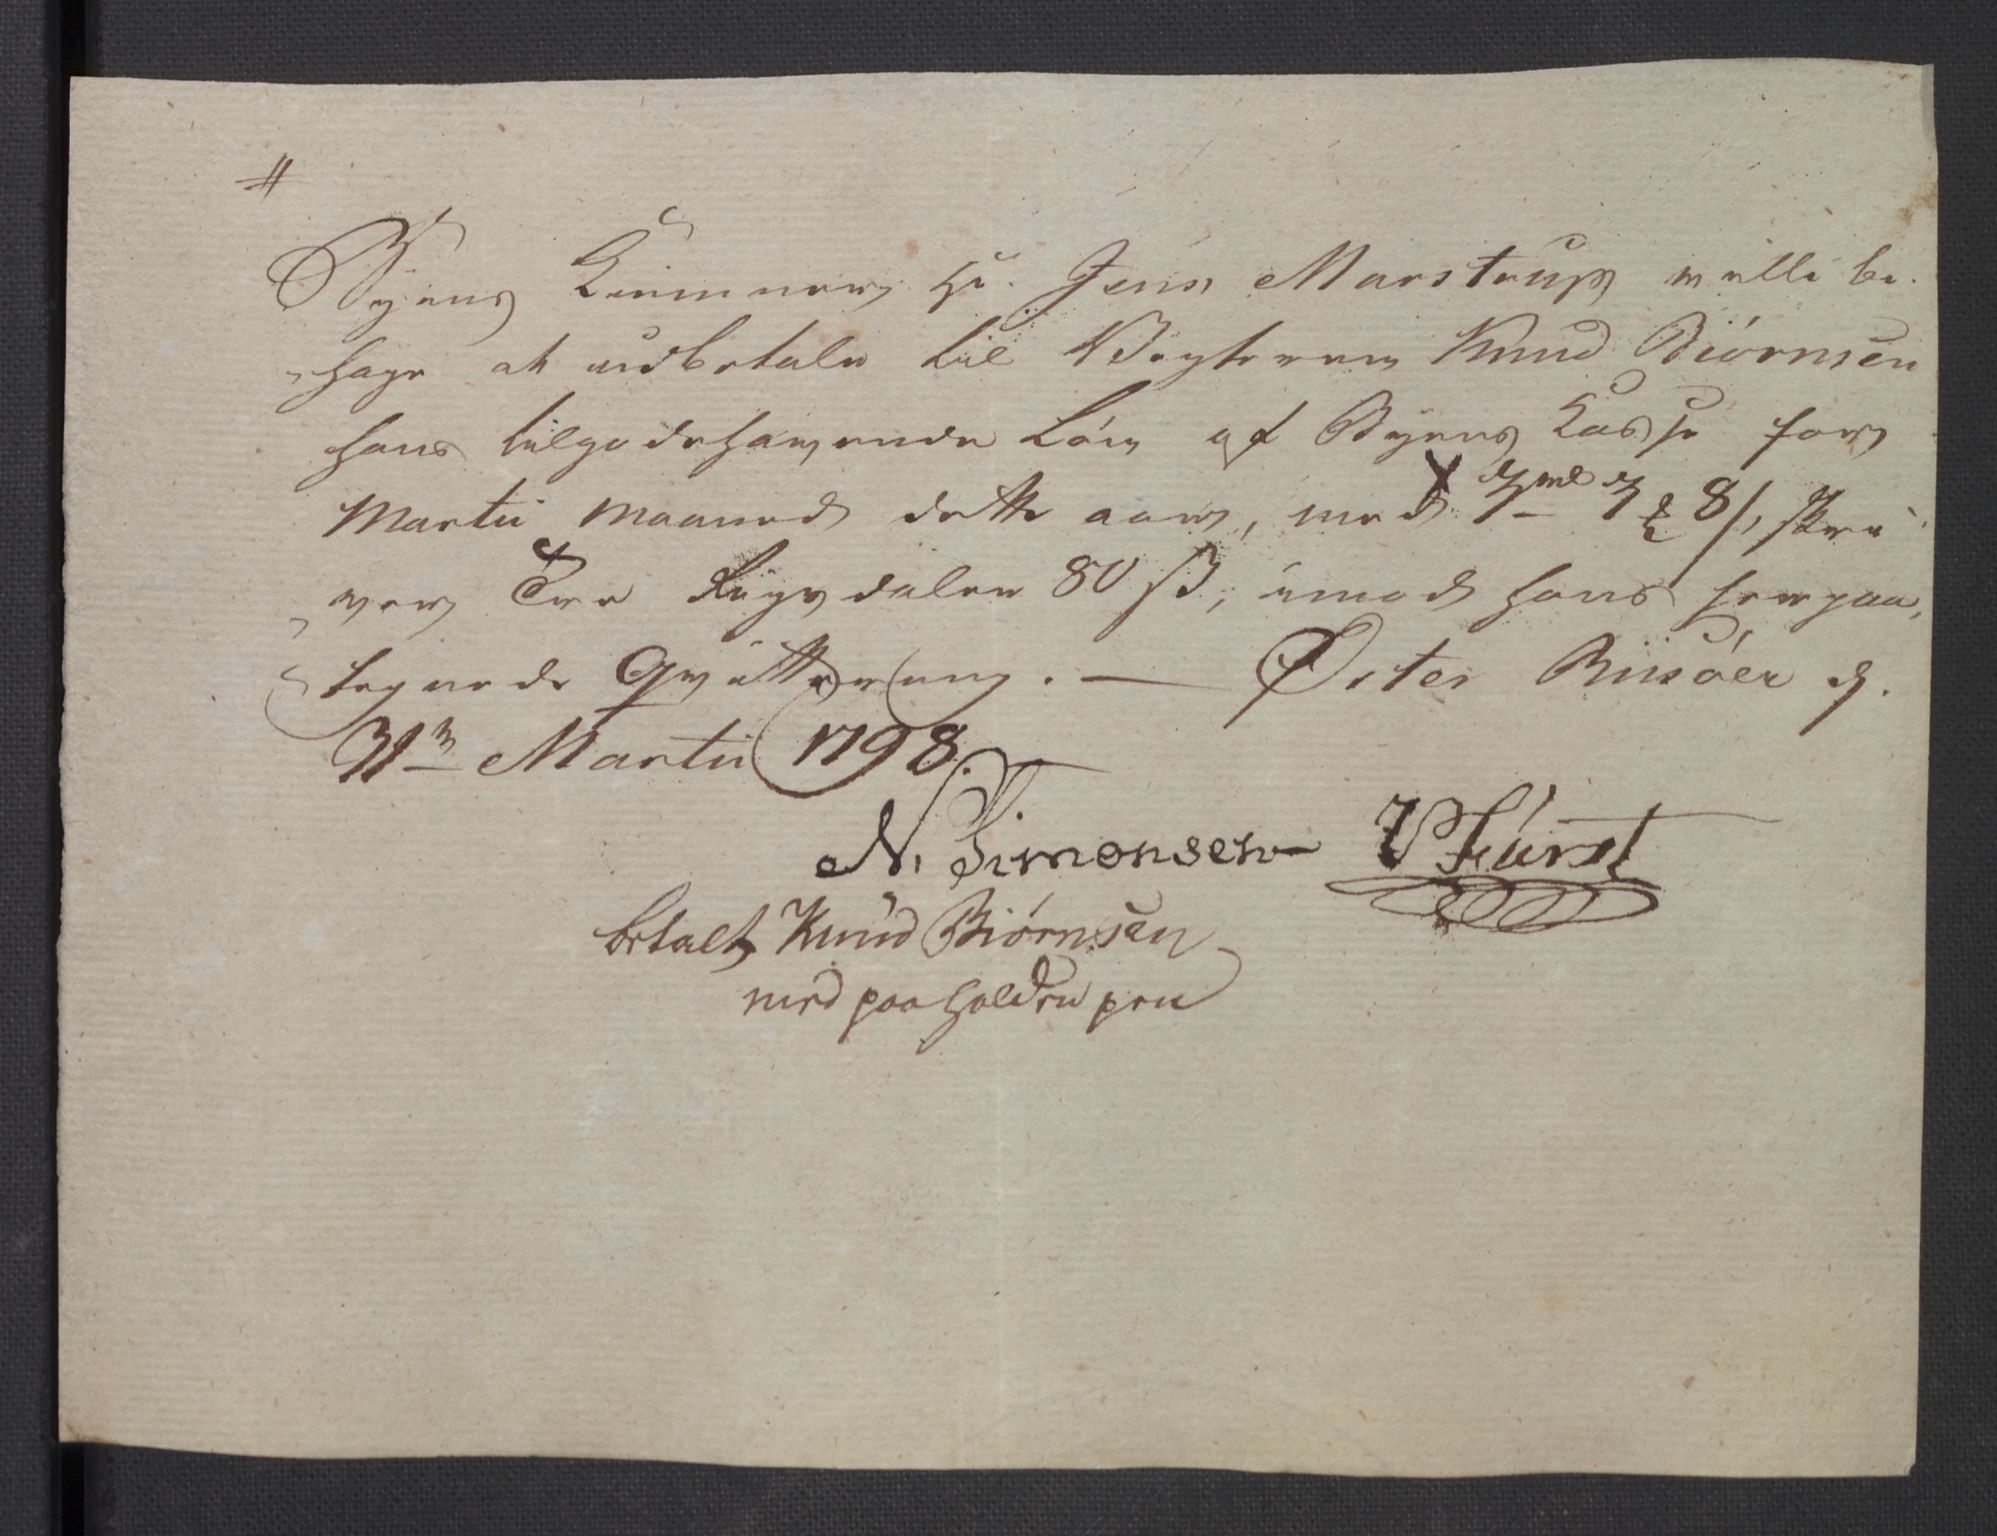 #
Byens Kiemner Hr. Jens Marstrup ville be-
hage at udbetale til Vegteren Knud Biörnsen
hans tilgodehavende Lön af Byens Casse for
Martii Maaned dette aar, med 3 8 s, skri-
ver Tre Rigsdaler 80 s, imod hans herpaa
tegnede Qvittering. — Öster Riisöer d.
31te Martii 1798.
N. Simonsen Fürst
betalt Knud Biörnsen
med paaholden pen